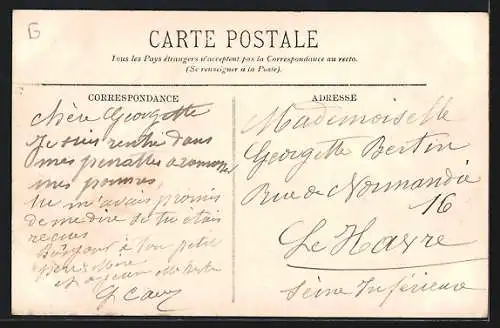 G
CARTE POSTALE
Tous les Pays étrangers n'acceptent pas la Correspondance au recto.
(Se renseigner à la Poste).
CORRESPONDANCE
chère Georgette
Je suis rentré dans
mes a ramasser
mes pommes,
tu m'avais promis
de me dire si tu étais
reçue
Bonjour à ton petit
frère
et au
ADRESSE
Mademoiselle
Georgette Bertin
Rue de Normandie
16
Le Havre
Seine Inférieure